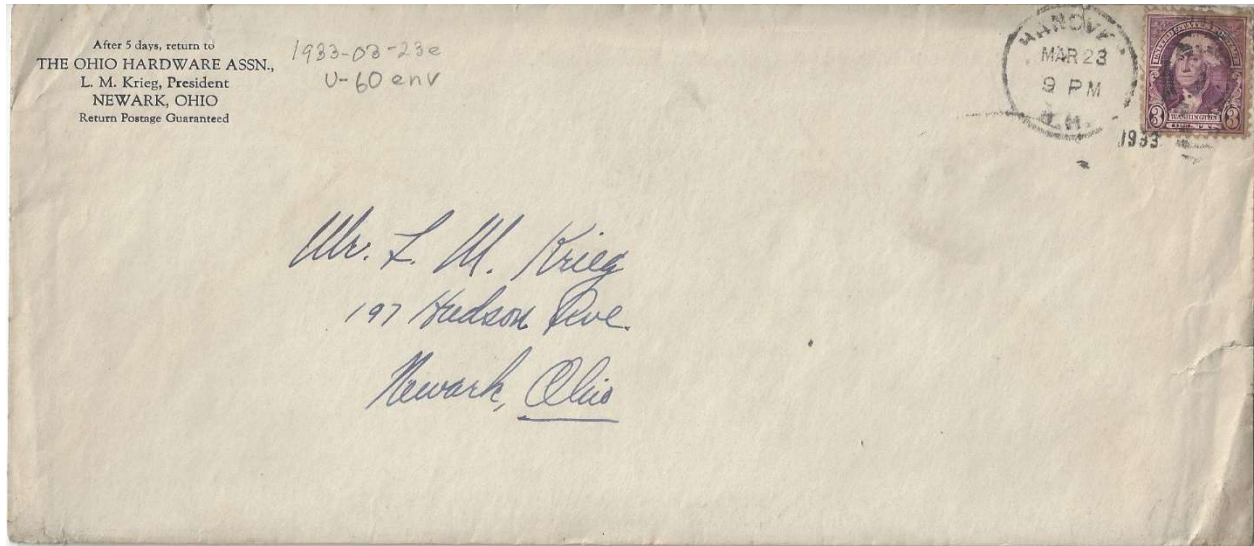 After 5 days, return to
THE OHIO HARDWARE ASSN.,
L. M. Krieg, President
NEWARK, OHIO
Return Postage Guaranteed
1933-03-23e
U-60 env
HANOVE
MAR 23
9 PM
N.H.
1933
UNITED STATES POSTAGE
3 WASHINGTON 3
CENTS
Mr. L. M. Krieg
197 Hudson Ave.
Newark, Ohio